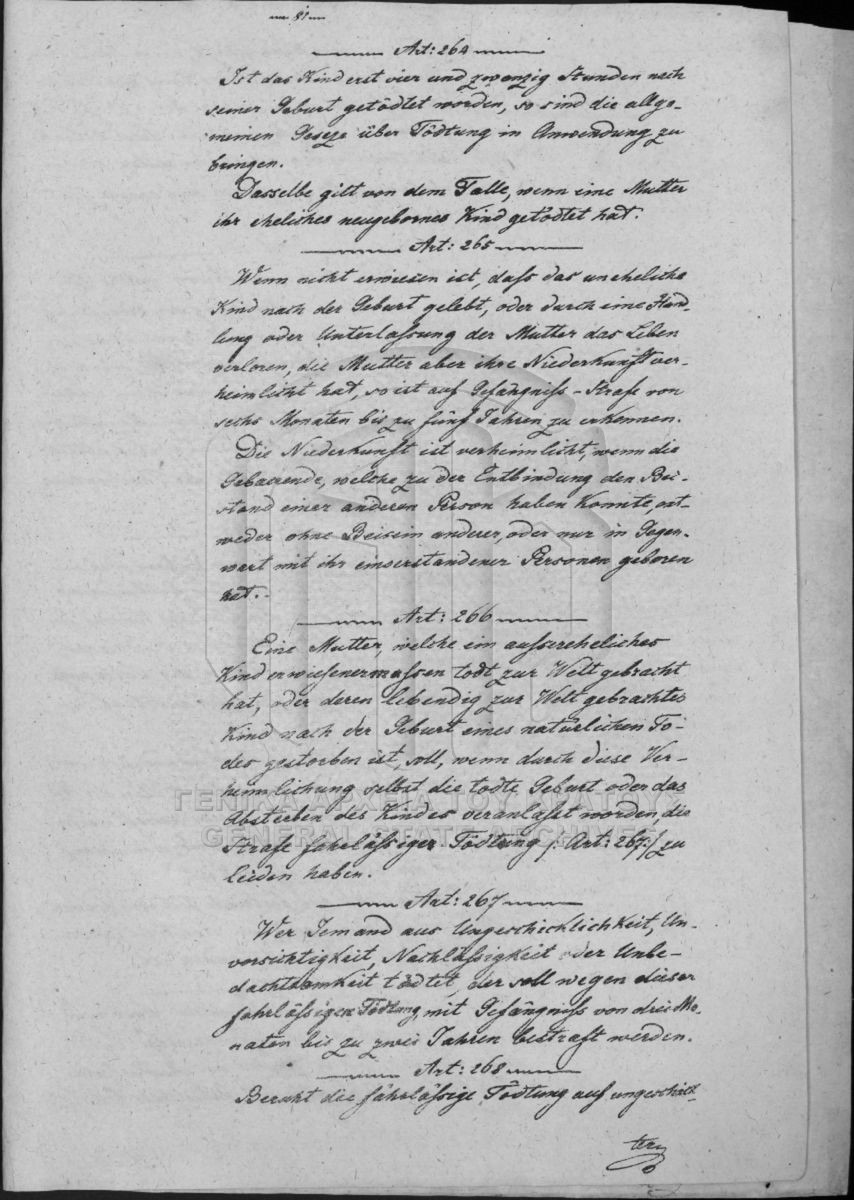 81
Art: 264
Ist das Kind erst vier und zwanzig Stunden nach
seiner Geburt getödtet worden, so sind die allge-
meinen Geseze über Tödtung in Anwendung zu
bringen.
Dasselbe gilt von dem Falle, wenn eine Mutter
ihr eheliches neugebornes Kind getödtet hat.
Art: 265
Wenn nicht erwiesen ist, daß das uneheliche
Kind nach der Geburt gelebt, oder durch eine Hand-
lung oder Unterlassung der Mutter das Leben
verloren, die Mutter aber ihre Niederkunft ver-
heimlicht hat, so ist auf Gefängniß-Strafe von
sechs Monaten bis zu fünf Jahren zu erkennen.
Die Niederkunft ist verheimlicht, wenn die
Gebaerende, welche zu der Entbindung den Bei-
stand einer anderen Person haben konnte, ent-
weder ohne Beisein anderer, oder nur in Gegen-
wart mit ihr einverstandener Personen geboren
hat.
Art: 266
Eine Mutter, welche ein aussereheliches
Kind erwiesenermassen todt zur Welt gebracht
hat, oder deren lebendig zur Welt gebrachtes
Kind nach der Geburt eines natürlichen To-
des gestorben ist, soll, wenn durch diese Ver-
heimlichung selbst die todte Geburt oder das
Absterben des Kindes veranlaßt worden, die
Strafe fahrläßiger Tödtung /: Art: 267:/ zu
leiden haben.
ΓΕΝΙΚΑ ΑΡΧΕΙΑ ΤΟΥ ΚΡΑΤΟΥΣ
GENERAL STATE ARCHIVES
Art: 267
Wer Jemand aus Ungeschicklichkeit, Un-
vorsichtigkeit, Nachläßigkeit oder Unbe-
dachtsamkeit tödtet, der soll wegen dieser
fahrläßigen Tödtung mit Gefängniß von drei Mo-
naten bis zu zwei Jahren bestraft werden.
Art: 268
Beruht die fahrläßige Tödtung auf ungeschick-
ter